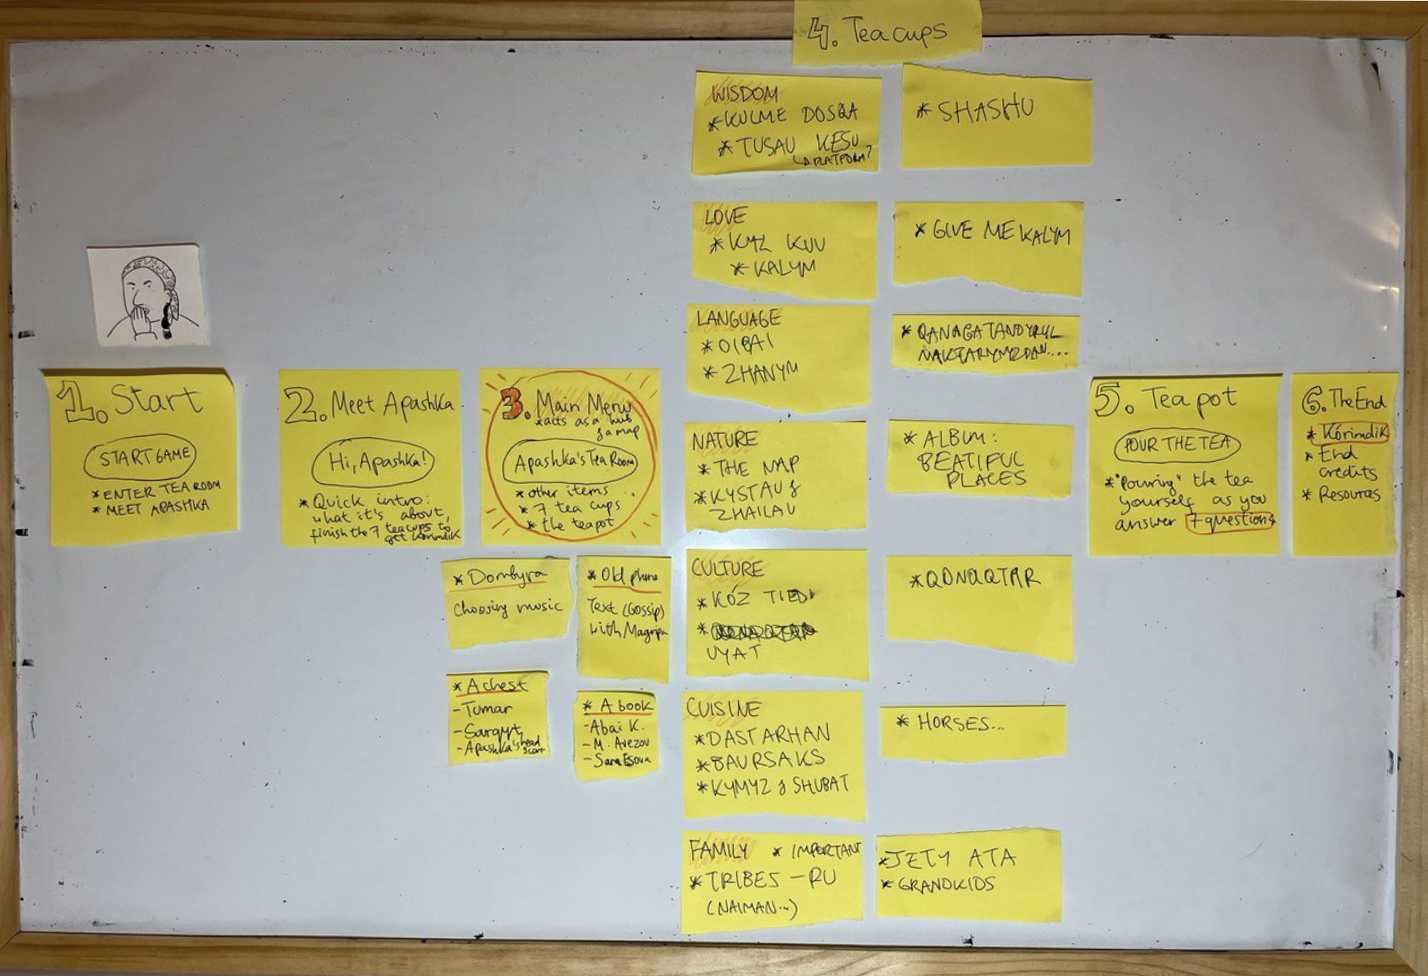 4. Teacups
1. Start
START GAME
* ENTER TEA ROOM
* MEET APASHKA
2. Meet Apashka
Hi, Apashka!
* Quick intro:
what it's about,
finish the 7 teacups to
get körimdik
3. Main Menu
* acts as a hub
& a map
Apashka's Tea Room
* other items
* 7 tea cups
* the teapot
* Dombyra
Choosing music
* Old phone
Text (Gossip)
with Magripa
* A chest
- Tumar
- Sarqyt
- Apashka's head
scarf
* A book
- Abai K.
- M. Avezov
- Sara Esova
WISDOM
* KULME DOSQA
* TUSAU KESU
↳ A PLATFORM?
* SHASHU
LOVE
* KYZ KUU
* KALYM
* GIVE ME KALYM
LANGUAGE
* OIBAI
* ZHANYM
* QANAGATANDYRYL
MAKTARYMYZDAN....
NATURE
* THE NAP
* KYSTAU &
ZHAILAU
* ALBUM:
BEATIFUL
PLACES
CULTURE
* KÓZ TIEDI
*
UYAT
* QONAQTAR
CUISINE
* DASTARHAN
* BAURSAKS
* KYMYZ & SHUBAT
* HORSES...
FAMILY * IMPORTANT
* TRIBES - RU
(NAIMAN...)
* JETY ATA
* GRANDKIDS
5. Teapot
POUR THE TEA
* "Pouring" the tea
yourself as you
answer 7 questions
6. The End
* Kórimdik
* End
credits
* Resources